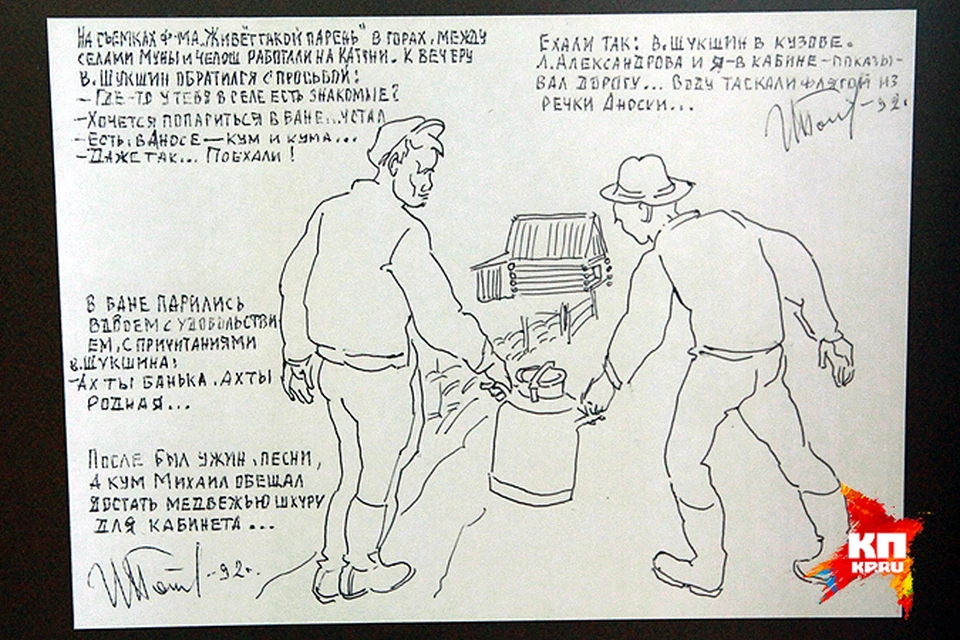 НА СЪЕМКАХ Ф-МА „ЖИВЁТ ТАКОЙ ПАРЕНЬ" В ГОРАХ, МЕЖДУ
СЕЛАМИ МУНЫ И ЧЕПОШ РАБОТАЛИ НА КАТУНИ. К ВЕЧЕРУ
В. ШУКШИН ОБРАТИЛСЯ С ПРОСЬБОЙ:
– ГДЕ-ТО У ТЕБЯ В СЕЛЕ ЕСТЬ ЗНАКОМЫЕ?
– ХОЧЕТСЯ ПОПАРИТЬСЯ В БАНЕ... УСТАЛ
– ЕСТЬ, В АНОСЕ — КУМ И КУМА...
– ДАЖЕ ТАК... ПОЕХАЛИ!
ЕХАЛИ ТАК: В. ШУКШИН В КУЗОВЕ.
Л. АЛЕКСАНДРОВА И Я – В КАБИНЕ – ПОКАЗЫ-
ВАЛ ДОРОГУ... ВОДУ ТАСКАЛИ ФЛЯГОЙ ИЗ
РЕЧКИ АНОСКИ...
– 92 г.
В БАНЕ ПАРИЛИСЬ
ВДВОЕМ С УДОВОЛЬСТВИ
ЕМ, С ПРИЧИТАНИЯМИ
В. ШУКШИНА:
– АХ ТЫ БАНЬКА. АХ ТЫ
РОДНАЯ...
ПОСЛЕ БЫЛ УЖИН, ПЕСНИ,
А КУМ МИХАИЛ ОБЕЩАЛ
ДОСТАТЬ МЕДВЕЖЬЮ ШКУРУ
ДЛЯ КАБИНЕТА...
– 92 г.
КП
KP.RU